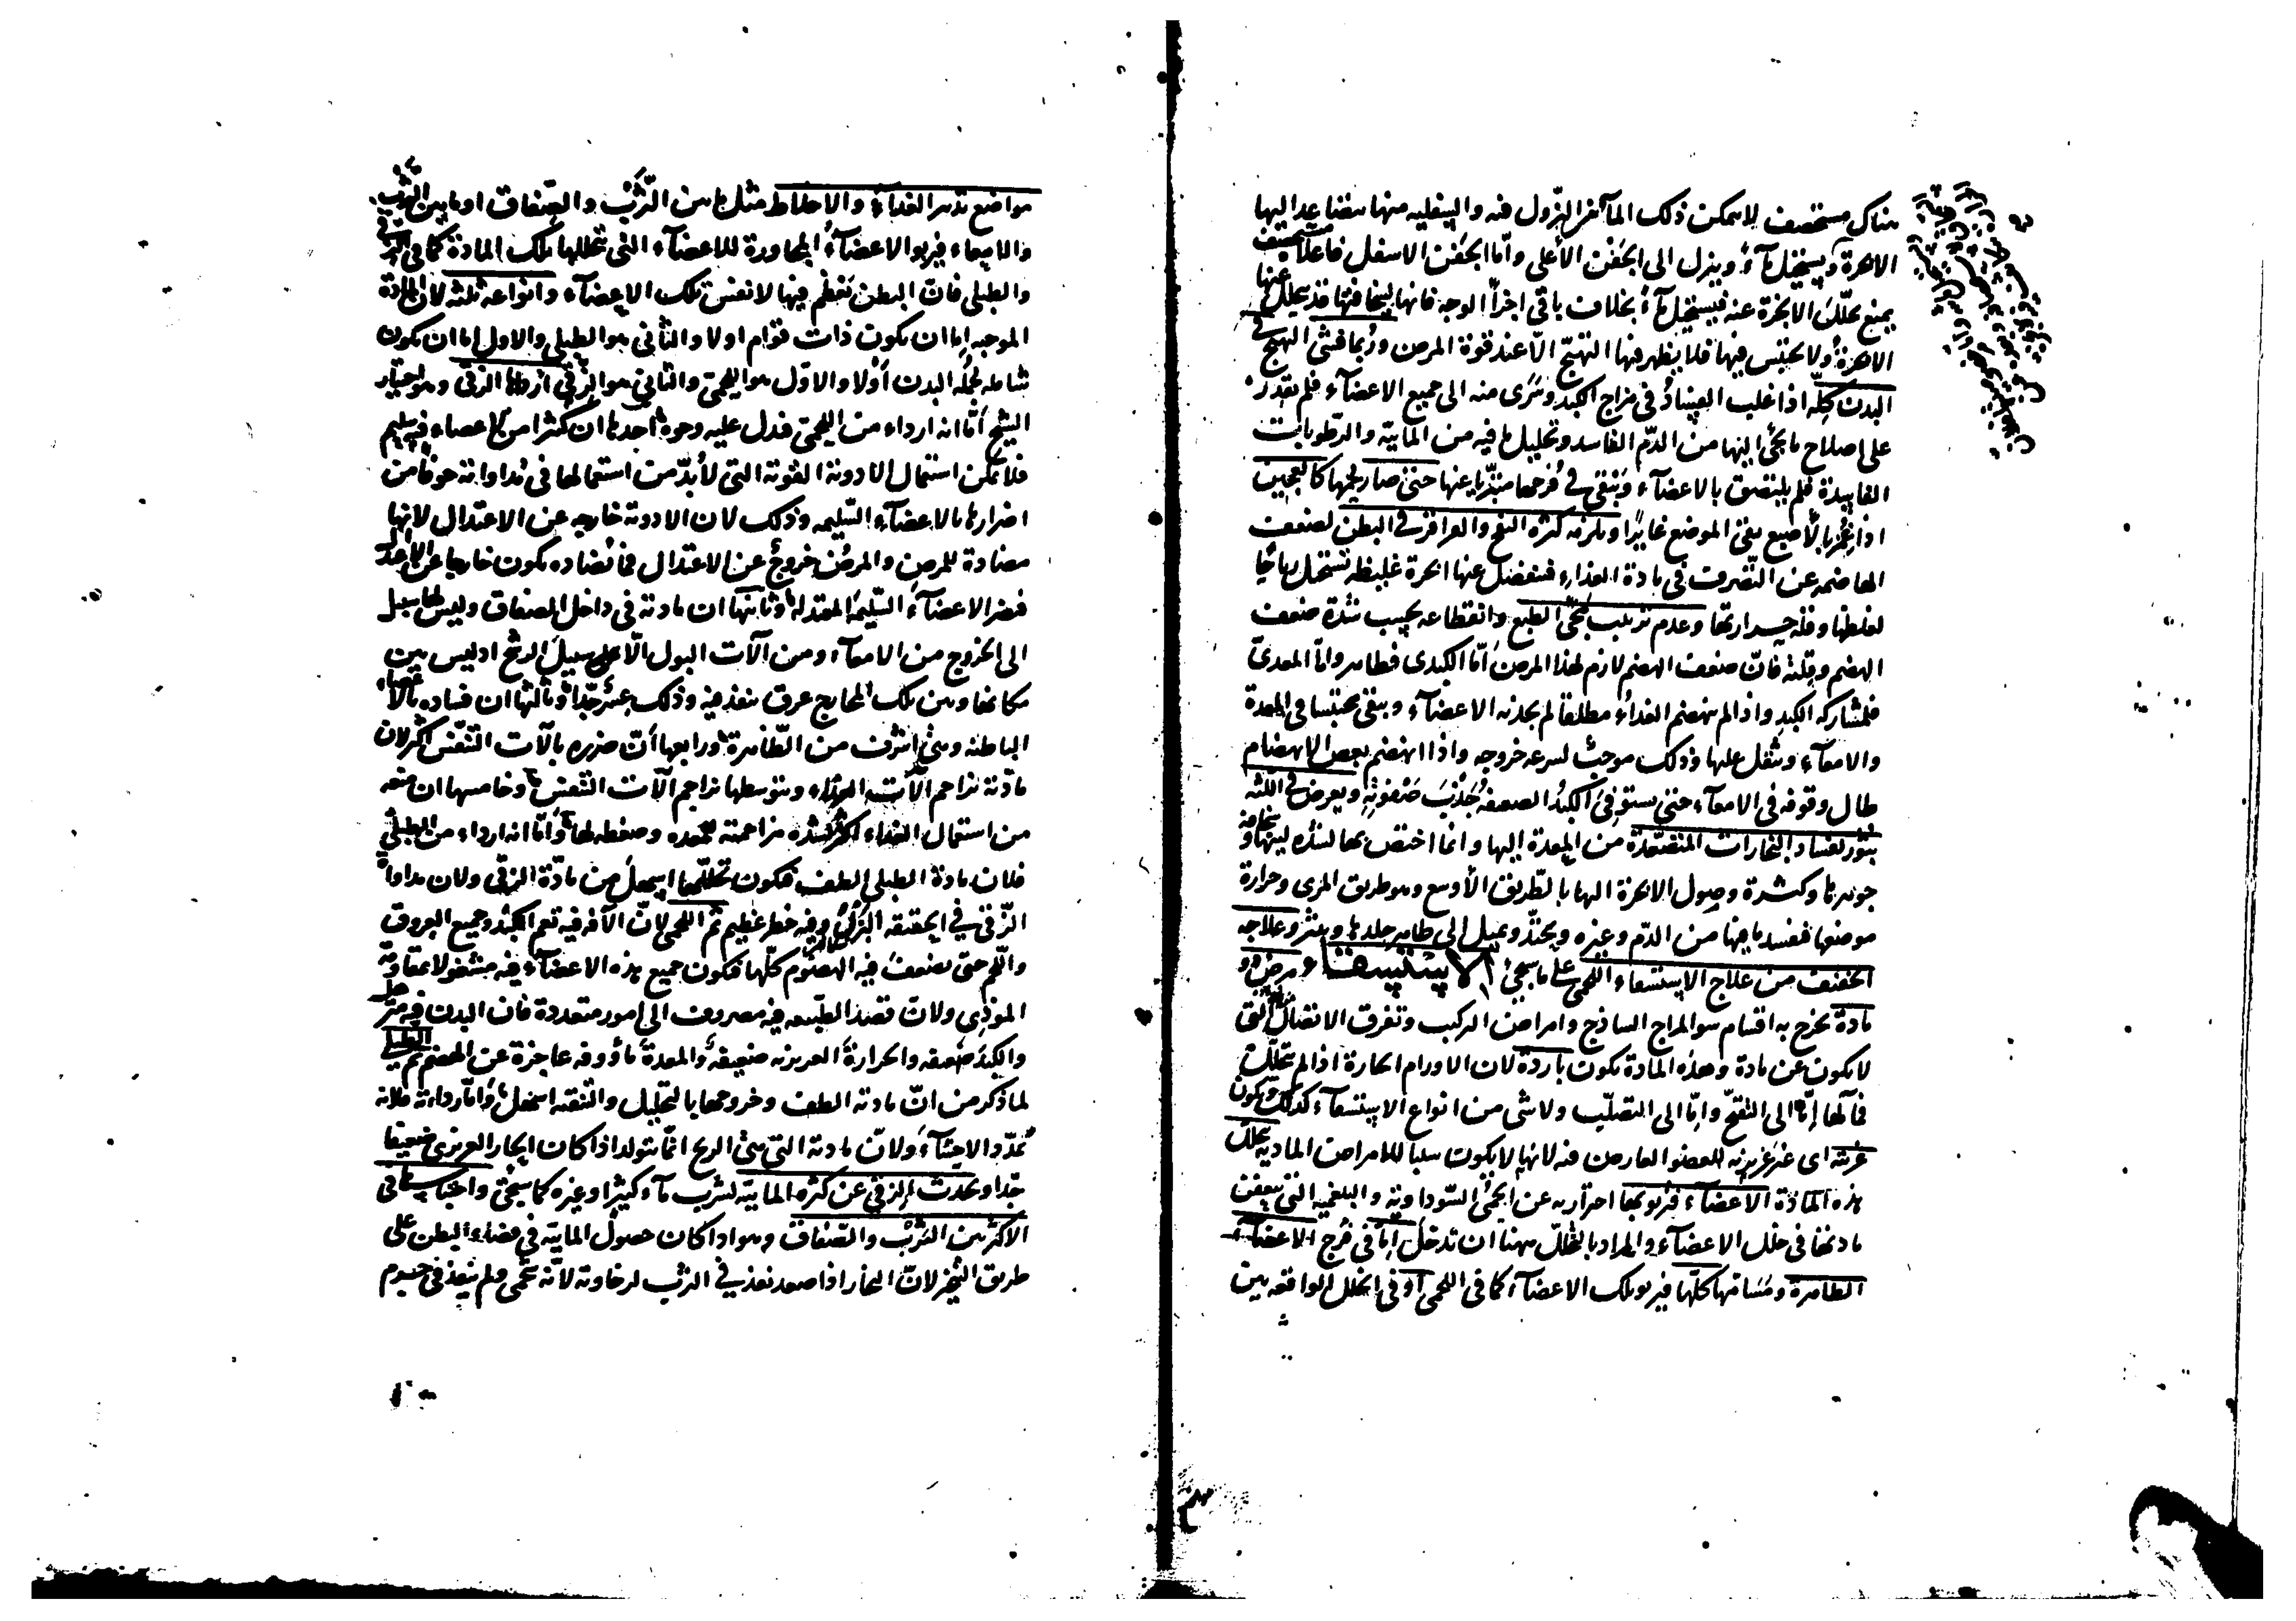 هناك مستخصف لا يمكن ذلك الماء من النزول فيه والسفلية منها يتصاعد اليها
الابخرة ويستحيل ماء وينزل الى الجفن الأعلى وأما الجفن الاسفل فاعلاه مستخصف
يمنع تحلل الابخرة عنه فيستحيل ماء بخلاف باقى اجزاء الوجه فانها لسخافتها قد يتحلل عنها
الابخرة ولا يحتبس فيها فلا يظهر فيها التهيج الا عند قوة المرض وربما فشى التهيج فى
البدن كله اذا غلب الفساد فى مزاج الكبد وسرى منه الى جميع الاعضاء فلم تقدر
على اصلاح ما يجئ اليها من الدم الفاسد وتحليل ما فيه من المائية والرطوبات
الفاسدة فلم يلتصق بالاعضاء وتبقى فى فرجها متبرئا عنها حتى صار لحمها كالعجين
اذا غمز بالأصبع بقى الموضع غايرا ويلزمه كثرة النفخ والقراقر فى البطن لضعف
الهاضمة عن التصرف فى مادة الغذاء فتفضل عنها ابخرة غليظة تستحيل رياحا
لغلظها وقلة حرارتها وعدم ترتيب مجئ الطبع وانقطاعه بحسب شدة ضعف
الهضم وقلته فان ضعف الهضم لازم لهذا المرض أما الكبدى فظاهر وأما المعدى
فلمشاركة الكبد واذا لم ينهضم الغذاء مطلقا لم يجذبه الاعضاء وبقى محتبسا فى المعدة
والامعاء وثقل عليها وذلك موجب لسرعة خروجه واذا انهضم بعض الانهضام
طال وقوفه فى الامعاء حتى يستوفى الكبد الضعيفة جذب صفوته ويعرض فى اللثة
بثور لفساد البخارات المتصعدة من المعدة اليها وانما اختص بها لشدة لينها وسخافة
جوهرها وكثرة وصول الابخرة اليها بالطريق الأوسع وهو طريق المرى وحرارة
موضعها فيفسد ما فيها من الدم وغيره ويحتد ويميل الى ظاهر جلدها ويبثر وعلاجه
الخفيف من علاج الاستسقاء اللحمى على ما سيجئ الاستسقاء مرض ذو
مادة يخرج به اقسام سوء المزاج الساذج وامراض التركيب وتفرق الاتصال التى
لا يكون عن مادة وهذه المادة تكون باردة لان الاورام الحارة اذا لم تتحلل
فمآلها إما الى التقيح وإما الى التصلب ولا شى من انواع الاستسقاء كذلك ويكون
غريبة اى غير غريزية للعضو العارض فيه لانها لا يكون سببا للامراض المادية يتخلل
هذه المادة الاعضاء فتربو بها احترازا به عن الحمى السوداوية والبلغمية التى يتعفن
مادتها فى خلل الاعضاء والمراد بالتخلل ههنا ان تدخل إما فى فرج الاعضاء
الظاهرة ومسامها كلها فيربو تلك الاعضاء كما فى اللحمى أو فى الخلل الواقعة بين
مواضع تدبير الغذاء والاخلاط مثل ما بين الثرب والصفاق او ما بين الثرب
والامعاء فيربو الاعضاء المجاورة للاعضاء التى تتخللها تلك المادة كما فى الزقى
والطبلى فان البطن تعظم فيها لا نفس تلك الاعضاء وانواعه ثلثة لان المادة
الموجبة إما ان يكون ذات قوام اولا والثانى هو الطبلى والاول إما ان يكون
شاملة لجملة البدن أولا والاول هو اللحمى والثانى هو الزقى اردأها الزقى وهو اختيار
الشيخ أما انه ارداء من اللحمى فدل عليه وجوه احدها ان كثيرا من الاعضاء فيه سليم
فلا يمكن استعمال الادوية القوية التى لابد من استعمالها فى مداواته خوفا من
اضرارها بالاعضاء السليمة وذلك لان الادوية خارجة عن الاعتدال لانها
مضادة للمرض والمرض خروج عن الاعتدال فما يضاده يكون خارجا عن الاعتدال
فيضر الاعضاء السليمة المعتدلة وثانيها ان مادته فى داخل الصفاق وليس لها سبيل
الى الخروج من الامعاء ومن آلات البول الا على سبيل الرشح اذ ليس بين
مكانها وبين تلك المخارج عرق ينفذ فيه وذلك عسر جدا وثالثها ان فساده بالاعضاء
الباطنة وهى اشرف من الظاهرة ورابعها أن ضرره بآلات التنفس اكثر لان
مادته تزاحم آلات الغذاء وبتوسطها تزاحم آلات التنفس وخامسها ان منعه
من استعمال الغذاء اكثر لشدة مزاحمته للمعدة وضغطه لها وأما انه ارداء من الطبلى
فلان مادة الطبلى الطف فيكون تحللها اسهل من مادة الزقى ولان مداواة
الزقى فى الحقيقة البزل وفيه خطر عظيم ثم اللحمى لان الآفة فيه تعم الكبد وجميع العروق
واللحم حتى يضعف فيه الهضوم كلها فيكون جميع هذه الاعضاء فيه مشغولا بمقاومة
الموذى ولان قصد الطبيعة فيه مصروف الى امور متعددة فان البدن فيه مترهل
والكبد ضعيفه والحرارة الغريزية ضعيفة والمعدة مأووفه عاجزة عن الهضم ثم الطبلى
لما ذكر من ان مادته الطف وخروجها بالتحليل والتنقية اسهل وأما رداءته فلانه
يمدد الاحشاء ولان مادته التى هى الريح انما تتولد اذا كان الحار الغريزى ضعيفا
جدا ويحدث الزقى عن كثرة المائية لشرب ماء كثير او غيره كما سيجئ واحتباسها فى
الاكثر بين الثرب والصفاق وهو اذا كان حصول المائية فى فضاء البطن على
طريق التبخر لان البخار اذا صعد نفذ فى الثرب لرخاوته لانه شحمى ولم ينفذ فى جرم